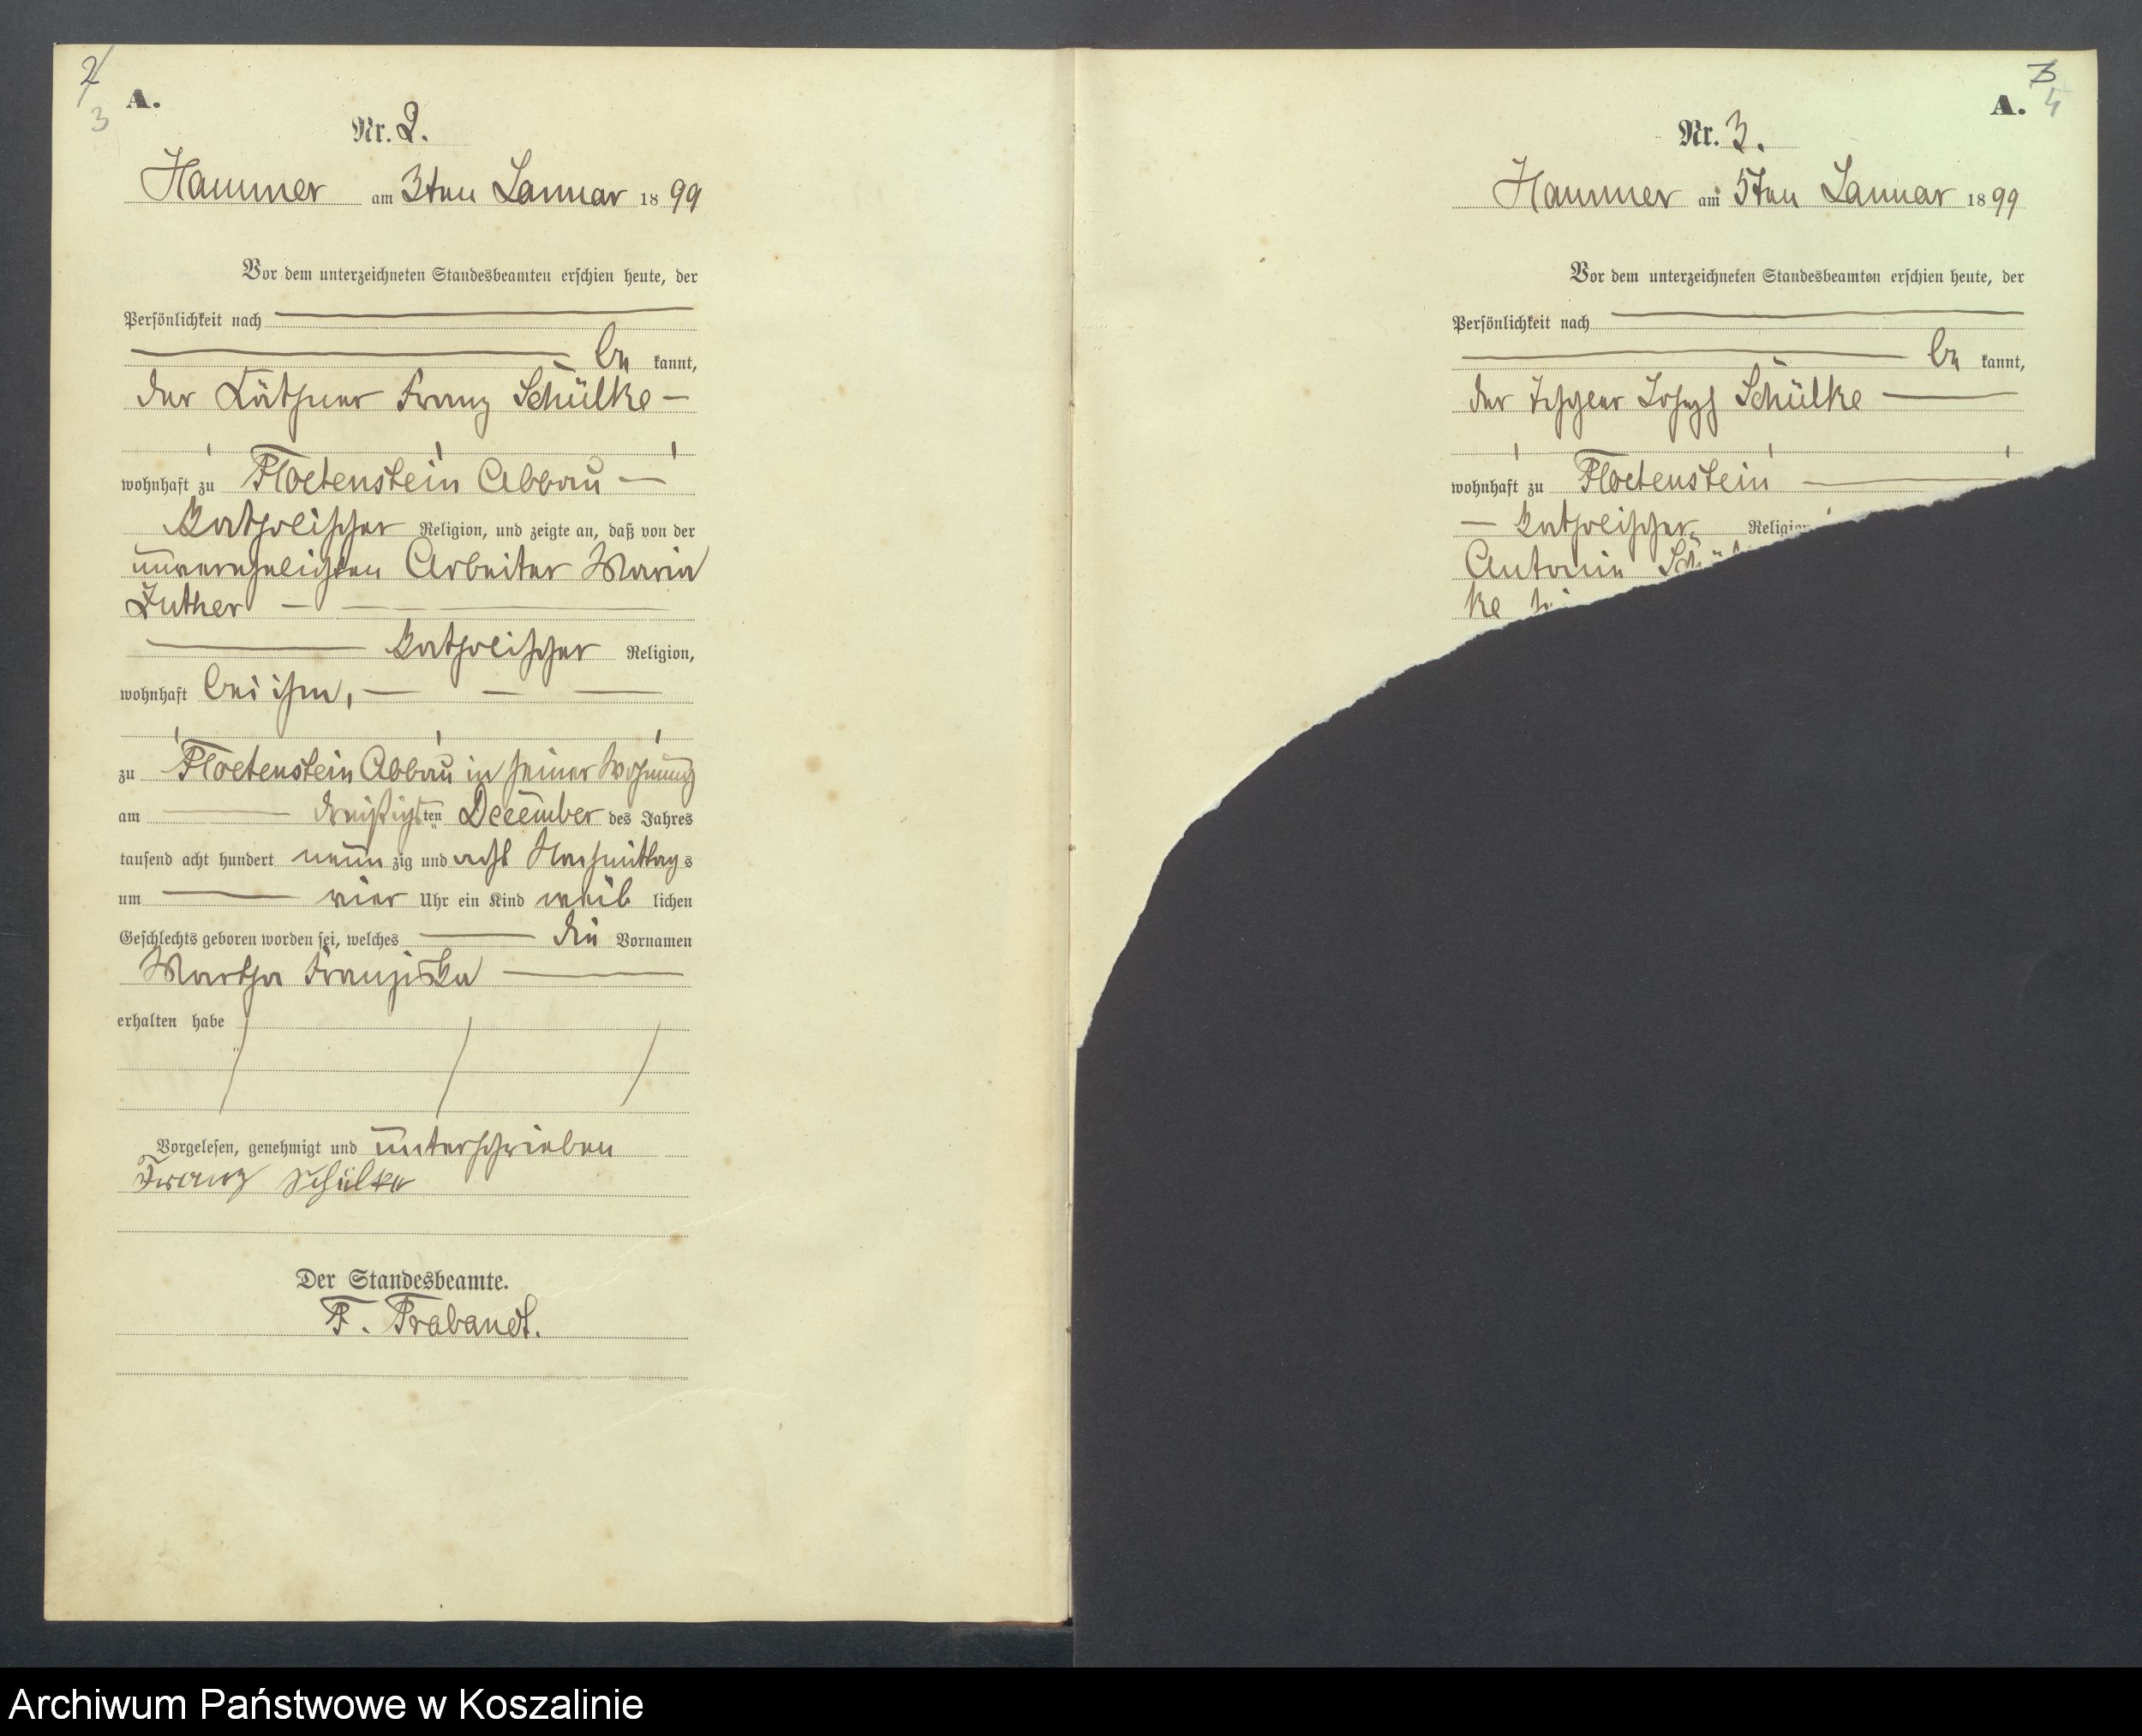 2
3
A.
Nr. 2.
Hammer am 3ten Januar 1899
Vor dem unterzeichneten Standesbeamten erschien heute, der
Persönlichkeit nach
be kannt,
der Käthner Franz Schülke
wohnhaft zu Floetenstein Abbau
katholischer Religion, und zeigte an, daß von der
unverehelichten Arbeiter Maria
Luther
katholischer Religion,
wohnhaft bei ihm,
zu Floetenstein Abbau in seiner Wohnung
am dreißigsten December des Jahres
tausend acht hundert neun zig und acht Nachmittags
um vier Uhr ein Kind weib lichen
Geschlechts geboren worden sei, welches die Vornamen
Martha Franziska
erhalten habe
Vorgelesen, genehmigt und unterschrieben
Franz Schülke
Der Standesbeamte.
F. Trabandt.
3
4
A.
Nr. 3.
Hammer am 5ten Januar 1899
Vor dem unterzeichneten Standesbeamten erschien heute, der
Persönlichkeit nach
be kannt,
der Joseph Schülke
wohnhaft zu Floetenstein
katholischer Religion
Antonie Schü
ke
Archiwum Państwowe w Koszalinie